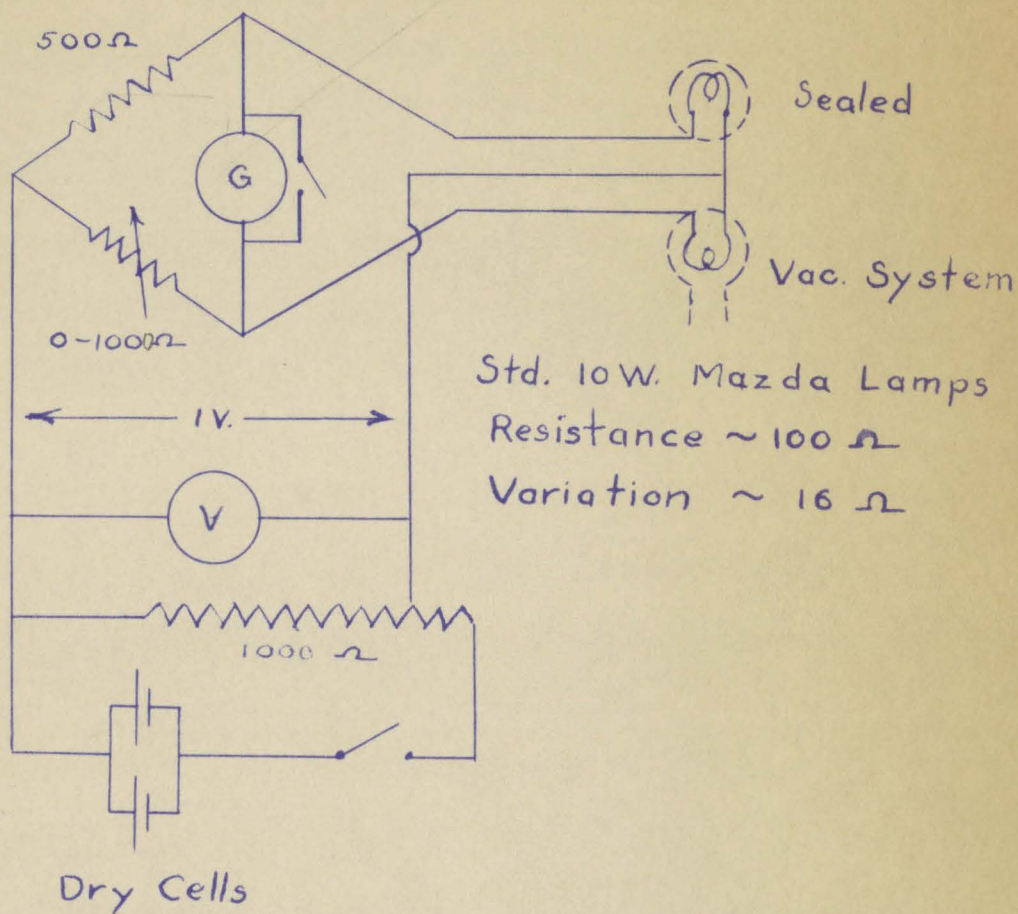 500Ω
Sealed
G
Vac. System
0-1000Ω
Std. 10 W. Mazda Lamps
1 V.
Resistance ~ 100 Ω
Variation ~ 16 Ω
V
1000 Ω
Dry Cells